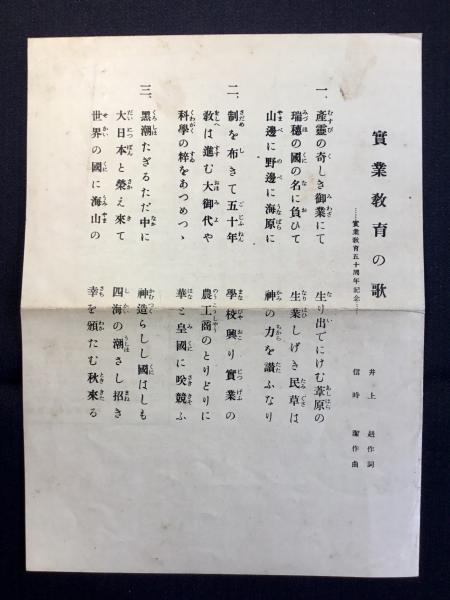 實業教育の歌
……實業教育五十周年記念……
井上赳作詞
信時潔作曲
一、産靈の奇しき御業にて 生り出でにけむ葦原の
瑞穗の國の名に負ひて 生業しげき民草は
山邊に野邊に海原に 神の力を讃ふなり
二、制を布きて五十年 學校興り實業の
敎は進む大御代や 農工商のとりどりに
科學の粹をあつめつゝ 華と皇國に咲競ふ
三、黑潮たぎるただ中に 神造らしし國はしも
大日本と榮え來て 四海の潮さし招き
世界の國に海山の 幸を頒たむ秋來る